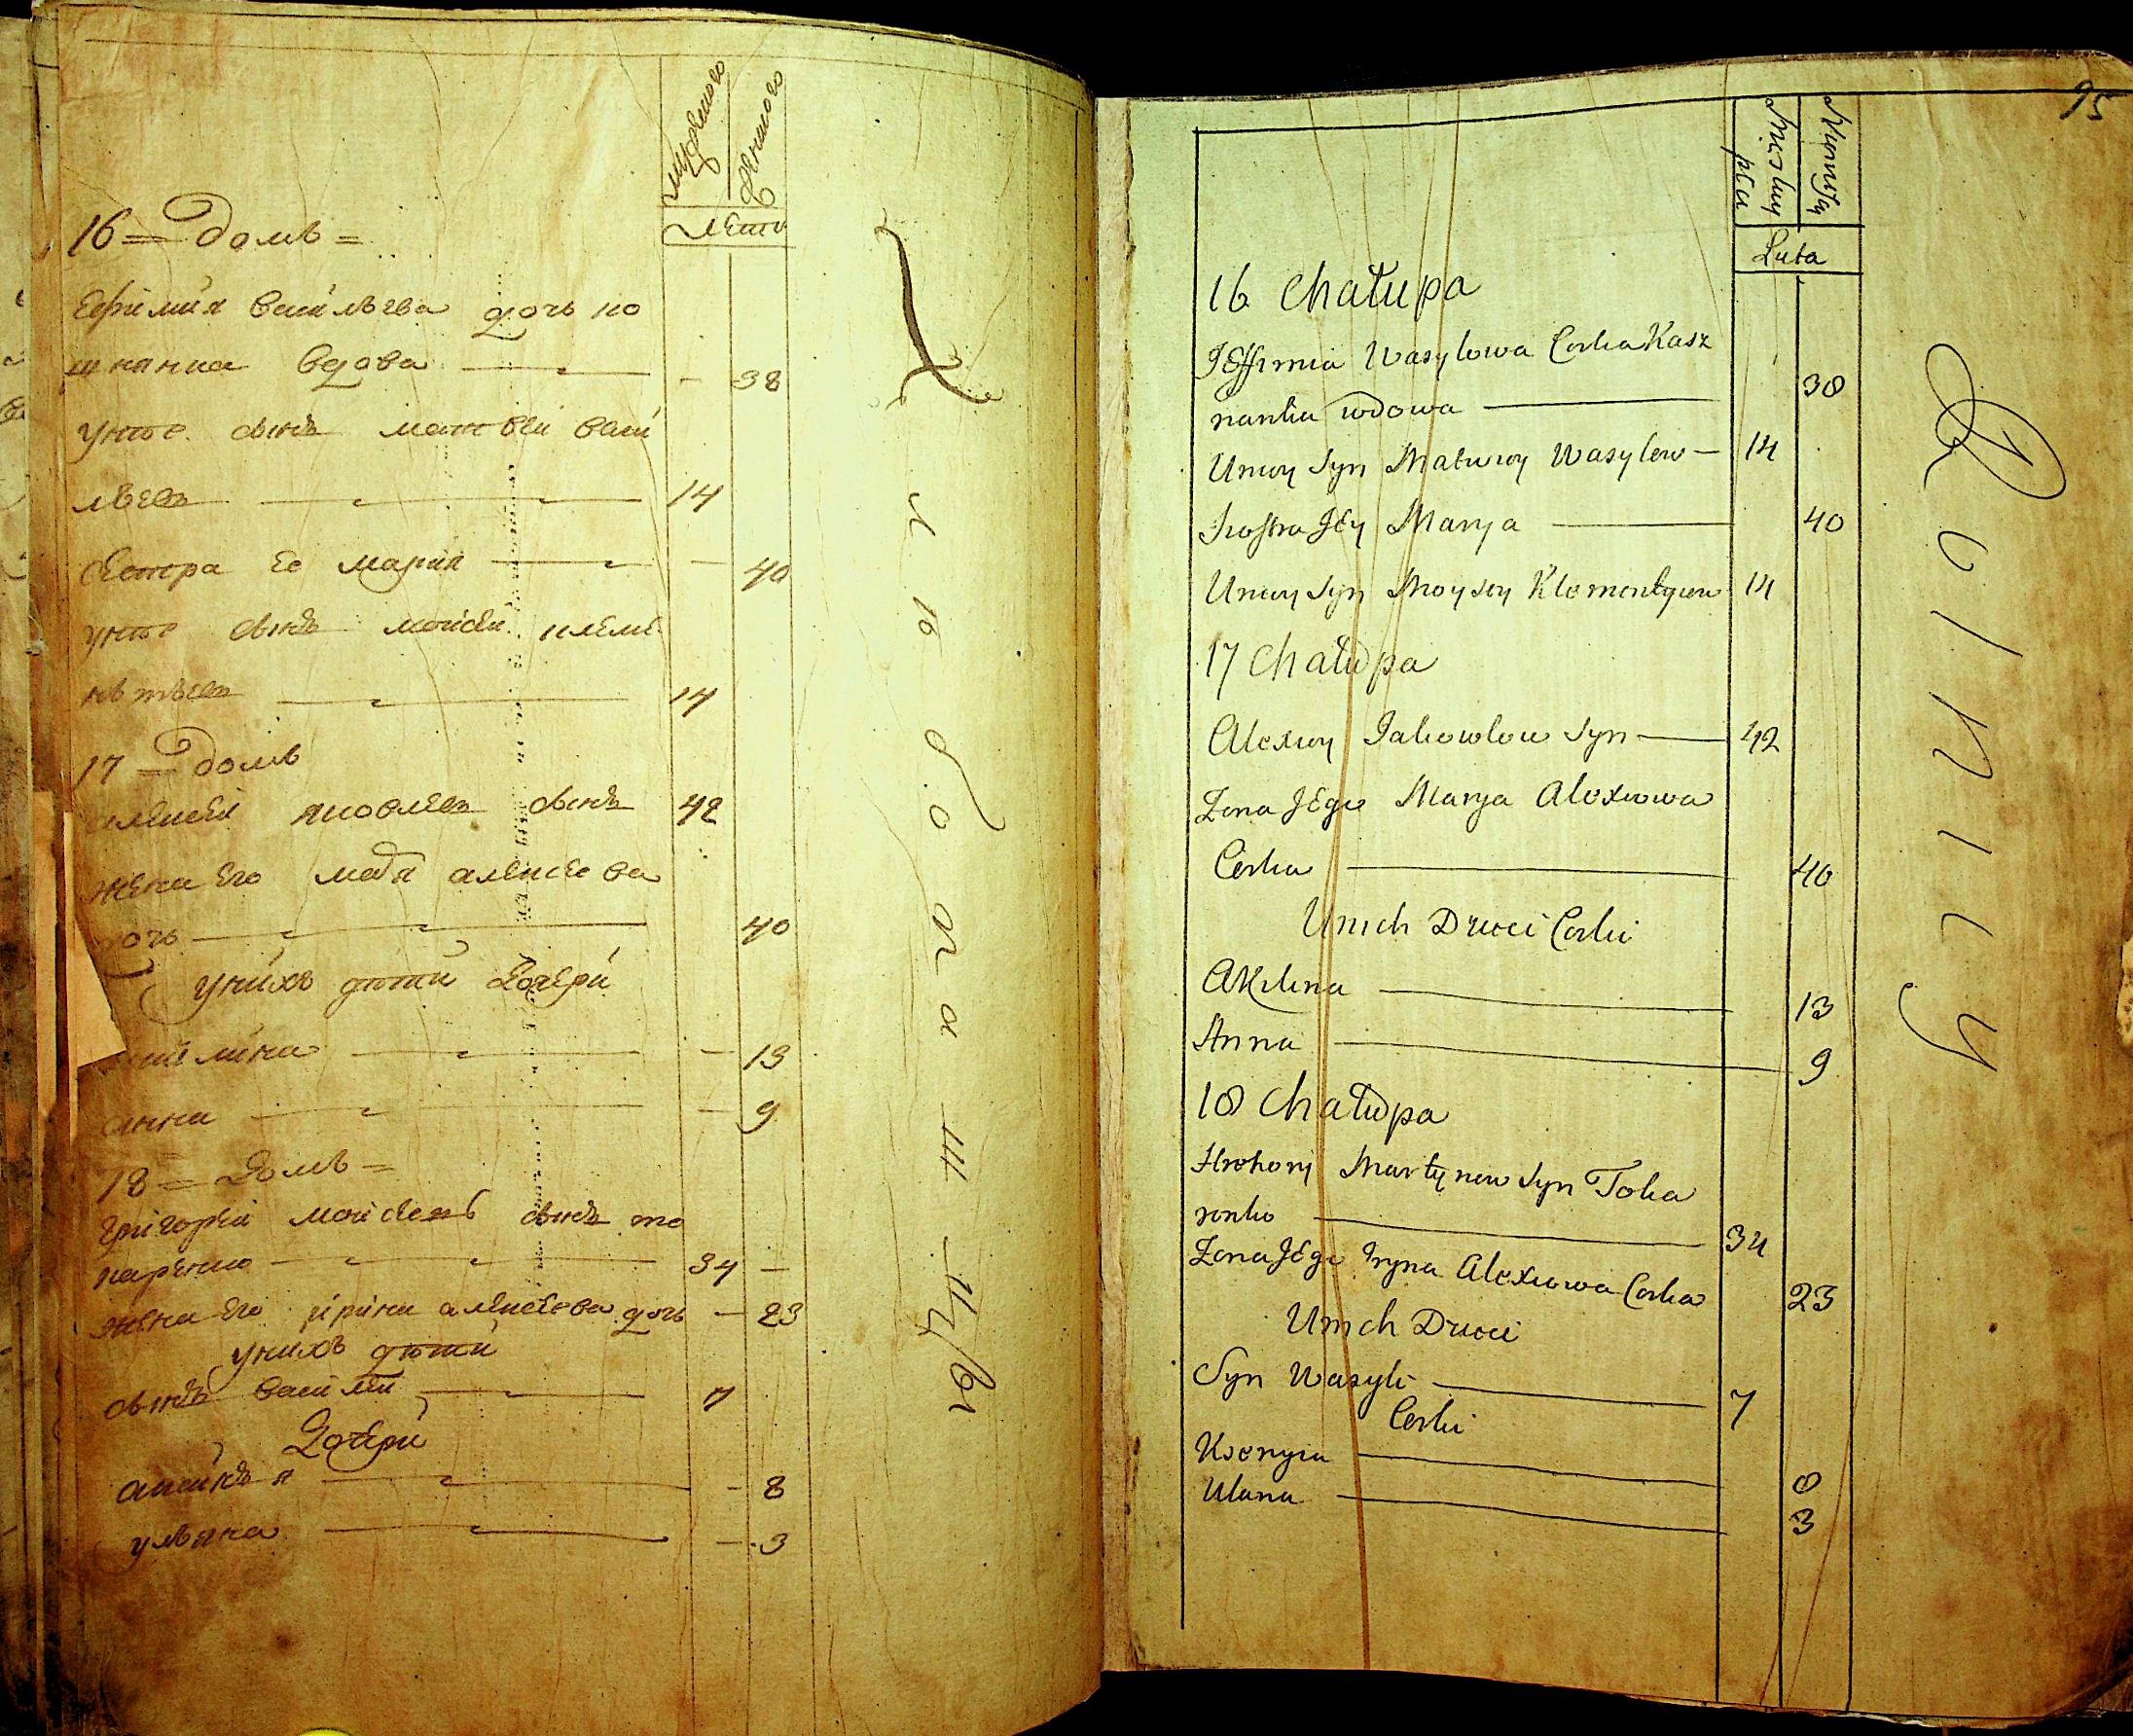 мужеского
женского
Лета
16 = домъ =
Ефимия васильева дочь ко
шканка вдова — - 38
унее сынъ матвеи васи
льевъ — 14
сестра ее мария — - 40
унее сынъ моисеи климе
нтьевъ — 14
17 = домъ
алексеи яковлевъ сынъ 42
жена его мария алексеева
дочь — 40
унихъ дети дочери
акилина — - 13
анна — - 9
18 = домъ =
григореи сынъ то
каренко — 34 —
жена его ирина алексеева дочь — 23
унихъ дети
сынъ василеи — 7
дочери
аксинья — - 8
ульяна — - 3
95
Męskey
płci
Niewisty
Luta
16 Chałupa
JEffimia Wasylowa Corka Kasz
nanka wdowa — 38
Uniey Syn Matwiey Wasylew — 14
Siostra JEy Marya — 40
Uniey Syn Moysey Klementyew 14
17 Chałupa
Alexiey Jakowlew Syn — 42
Zona JEgo Marya Alexiowa
Corka — 40
Unich Dzieci Corki
Akilina — 13
Anna — 9
18 Chałupa
Hrehory Martynow Syn Toka
renko — 34
Zona JEgo Iryna Alexiowa Corka 23
Unich Dzieci
Syn Wasyli — 7
Corki
Ksenyia — 8
Ulana — 3
Rolnicy